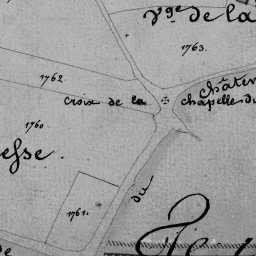 v.ge de la
1763.
1762.
croix de la
chapelle du
1760.
esse.
1761.
du
de